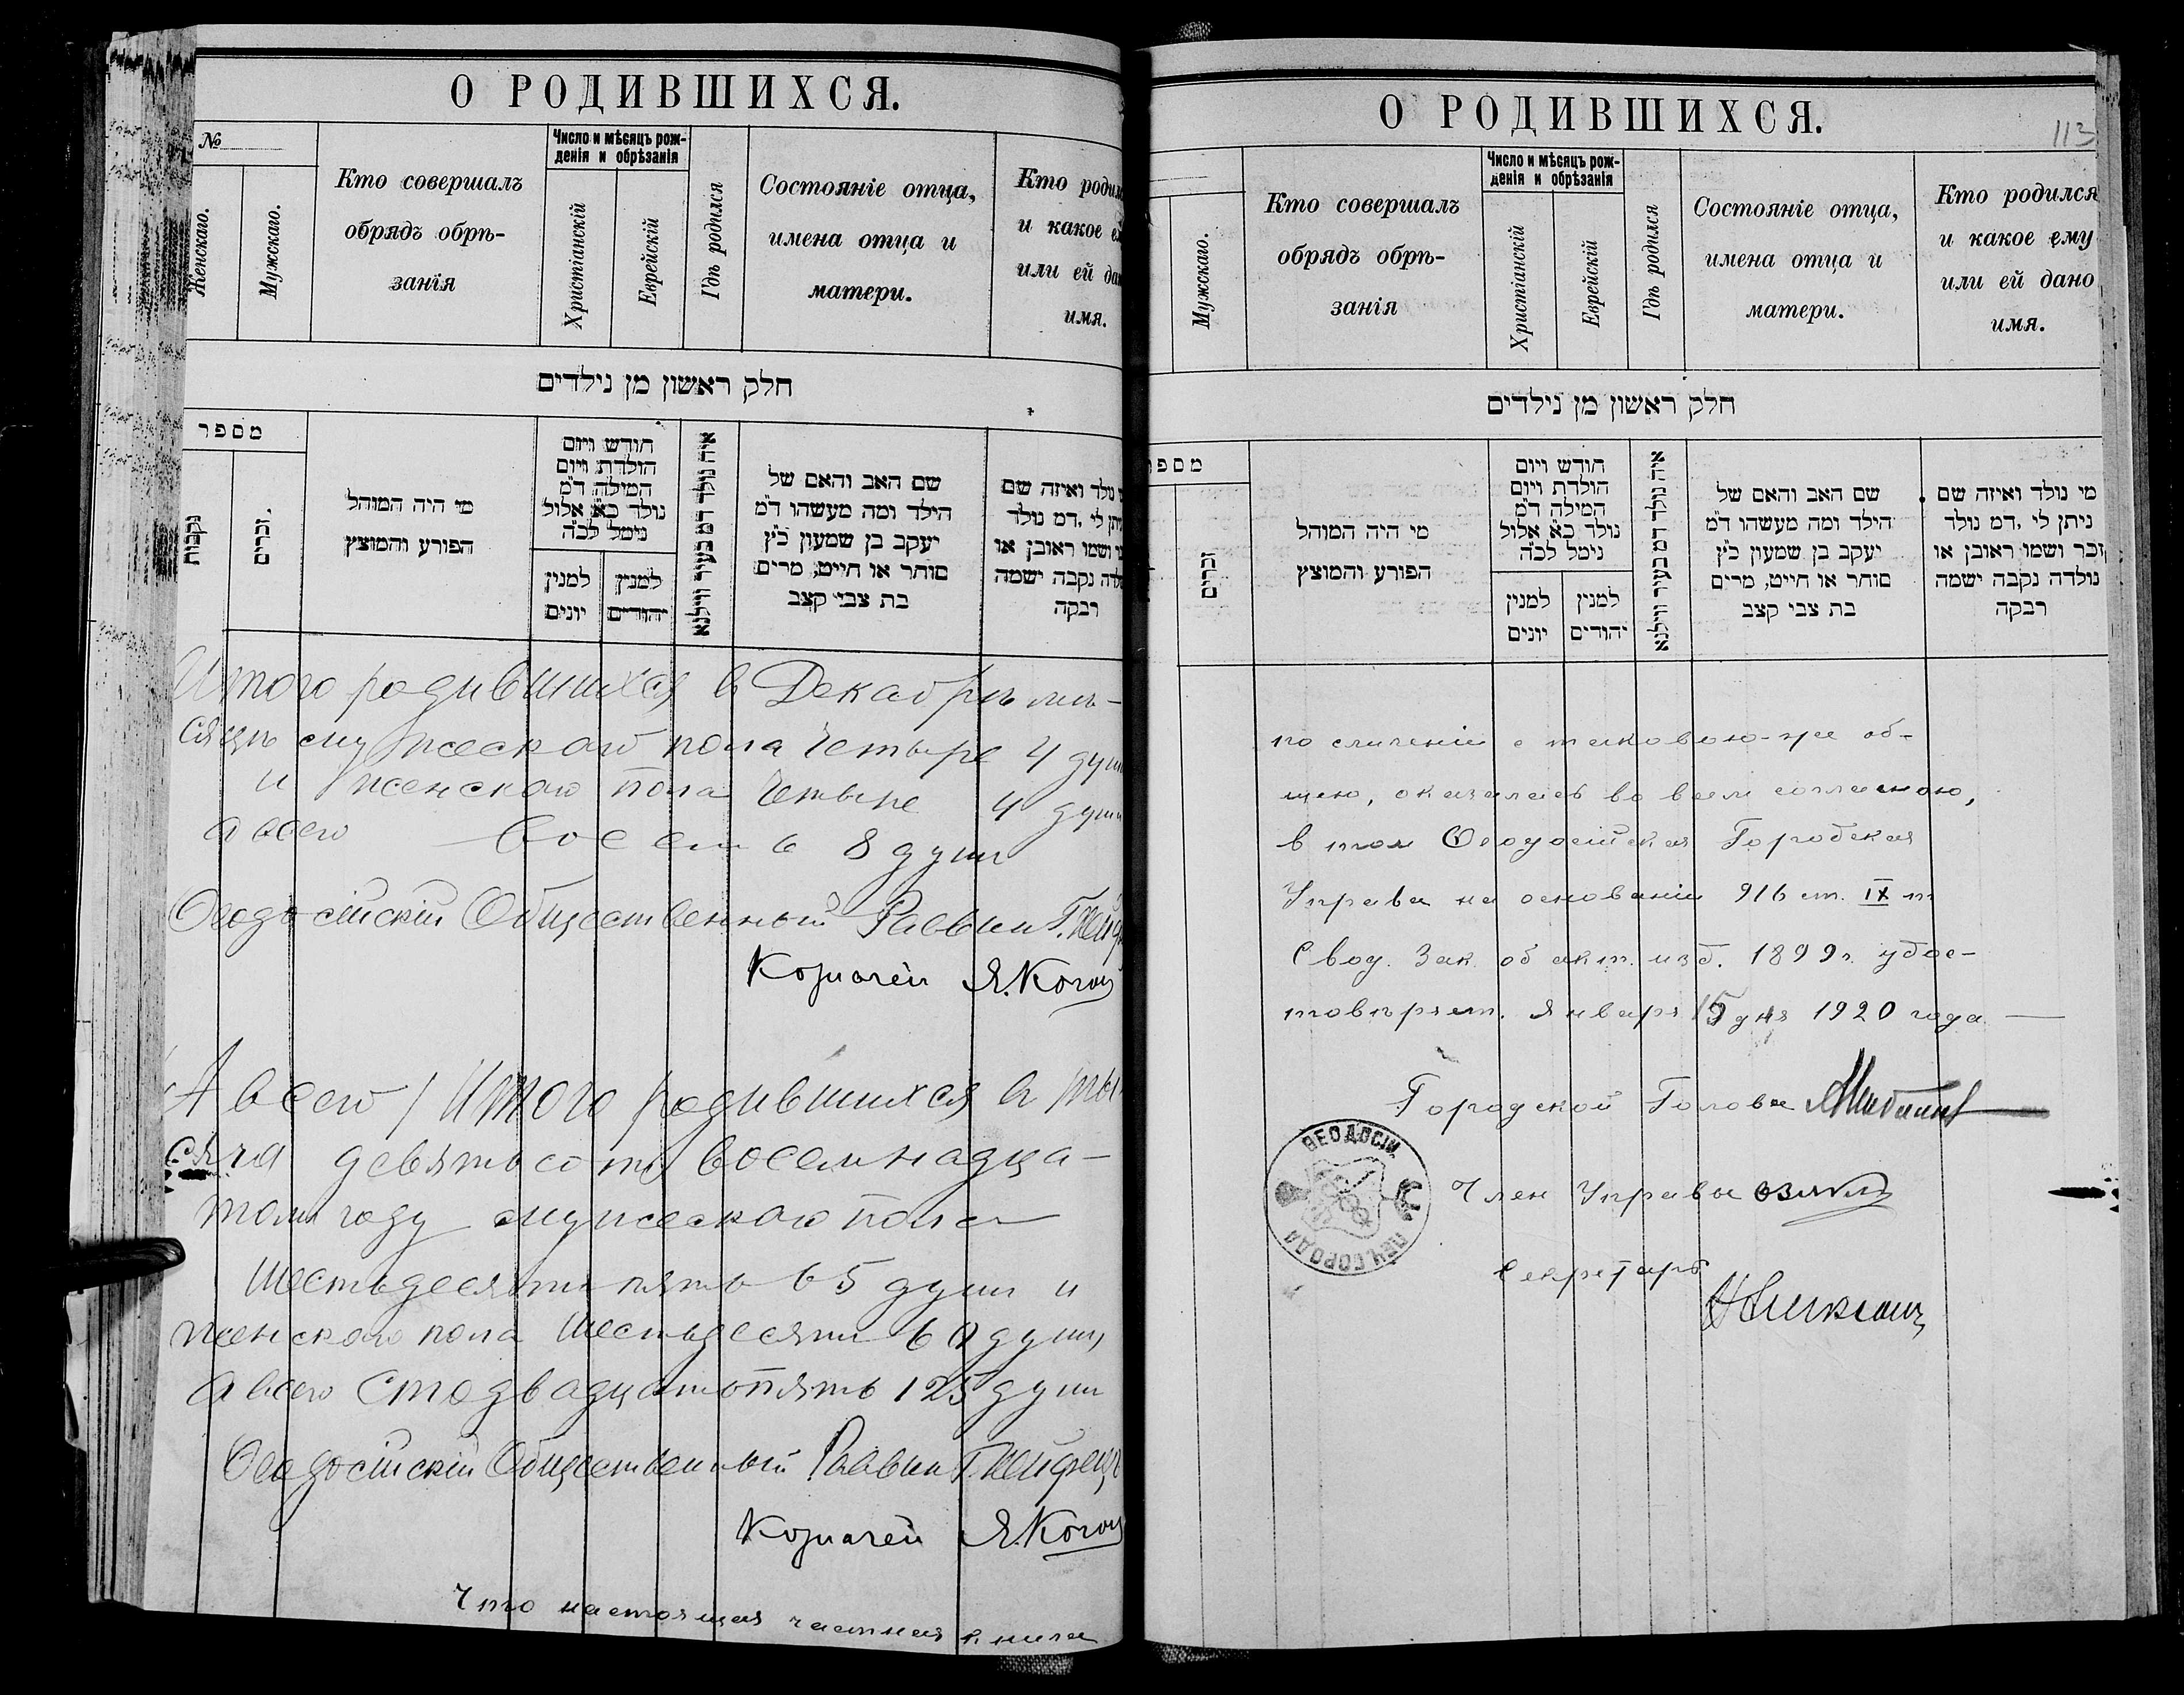 О РОДИВШИХСЯ.
№
Женскаго.
Мужскаго.
Кто совершалъ
обрядъ обрѣ-
занія
Число и мѣсяцъ рож-
денія и обрѣзанія
Христіанскій
Еврейскій
Гдѣ родился
Состояніе отца,
имена отца и
матери.
Кто родил
и какое е
или ей да
имя.
חלק ראשון מן נילדים
מספר
נקבות
זכרים
מי היה המוהל
הפורע והמוצץ
חודש ויום
הולדת ויום
המילה ד״מ
נולד כ״א אלול
נימל לכ״ה
למנין
יונים
למנין
יהודים
איה נולד דמ בעיר ווילנא
שם האב והאם של
הילד ומה מעשהו ד״מ
יעקב בן שמעון כ״ץ
סוחר או חייט, מרים
בת צבי קצב
נולד ואיזה שם
ניתן לי, דמ נולד
ושמו ראובן או
נולדה נקבה ישמה
רבקה
Итого родившихся в Декабрѣ мѣ-
сяцѣ мужескаго пола Четыре 4 душ
и женскаго пола Четыре 4 душ
а всего восемь 8 душ
Ѳеодосійскій Общественный Раввин
Казначей Я. Коган
А всего / Итого родившихся в ты-
сяча девятьсот восемнадца-
том году мужескаго пола
Шестьдесят пять 65 душ и
женскаго пола Шестьдесят 60 душ,
а всего Стодвадцатьпять 125 душ
Ѳеодосійскій Общественный Раввин
Казначей Я. Коган
Что настоящая частная книга
О РОДИВШИХСЯ.
113
Мужскаго.
Кто совершалъ
обрядъ обрѣ-
занія
Число и мѣсяцъ рож-
денія и обрѣзанія
Христіанскій
Еврейскій
Гдѣ родился
Состояніе отца,
имена отца и
матери.
Кто родился
и какое ему
или ей дано
имя.
חלק ראשון מן נילדים
מספ
זכרים
מי היה המוהל
הפורע והמוצץ
חודש ויום
הולדת ויום
המילה ד״מ
נולד כ״א אלול
נימל לכ״ה
למנין
יונים
למנין
יהודים
איה נולד דמ בעיר ווילנא
שם האב והאם של
הילד ומה מעשהו ד״מ
יעקב בן שמעון כ״ץ
סוחר או חייט, מרים
בת צבי קצב
מי נולד ואיזה שם
ניתן לי, דמ נולד
זכר ושמו ראובן או
נולדה נקבה ישמה
רבקה
по сличеніи с таковою-же об-
щею, оказалась во всем согласною,
в том Ѳеодосійская Городская
Управа на основаніи 916 ст. IX т
Свод. Зак. об акт. изд. 1899 г. удос-
товѣряет. Января 15 дня 1920 года
Городской Голова
ѲЕОДОСІИ
ПЕЧ. ГОРОДА
Член Управы
Секретарь